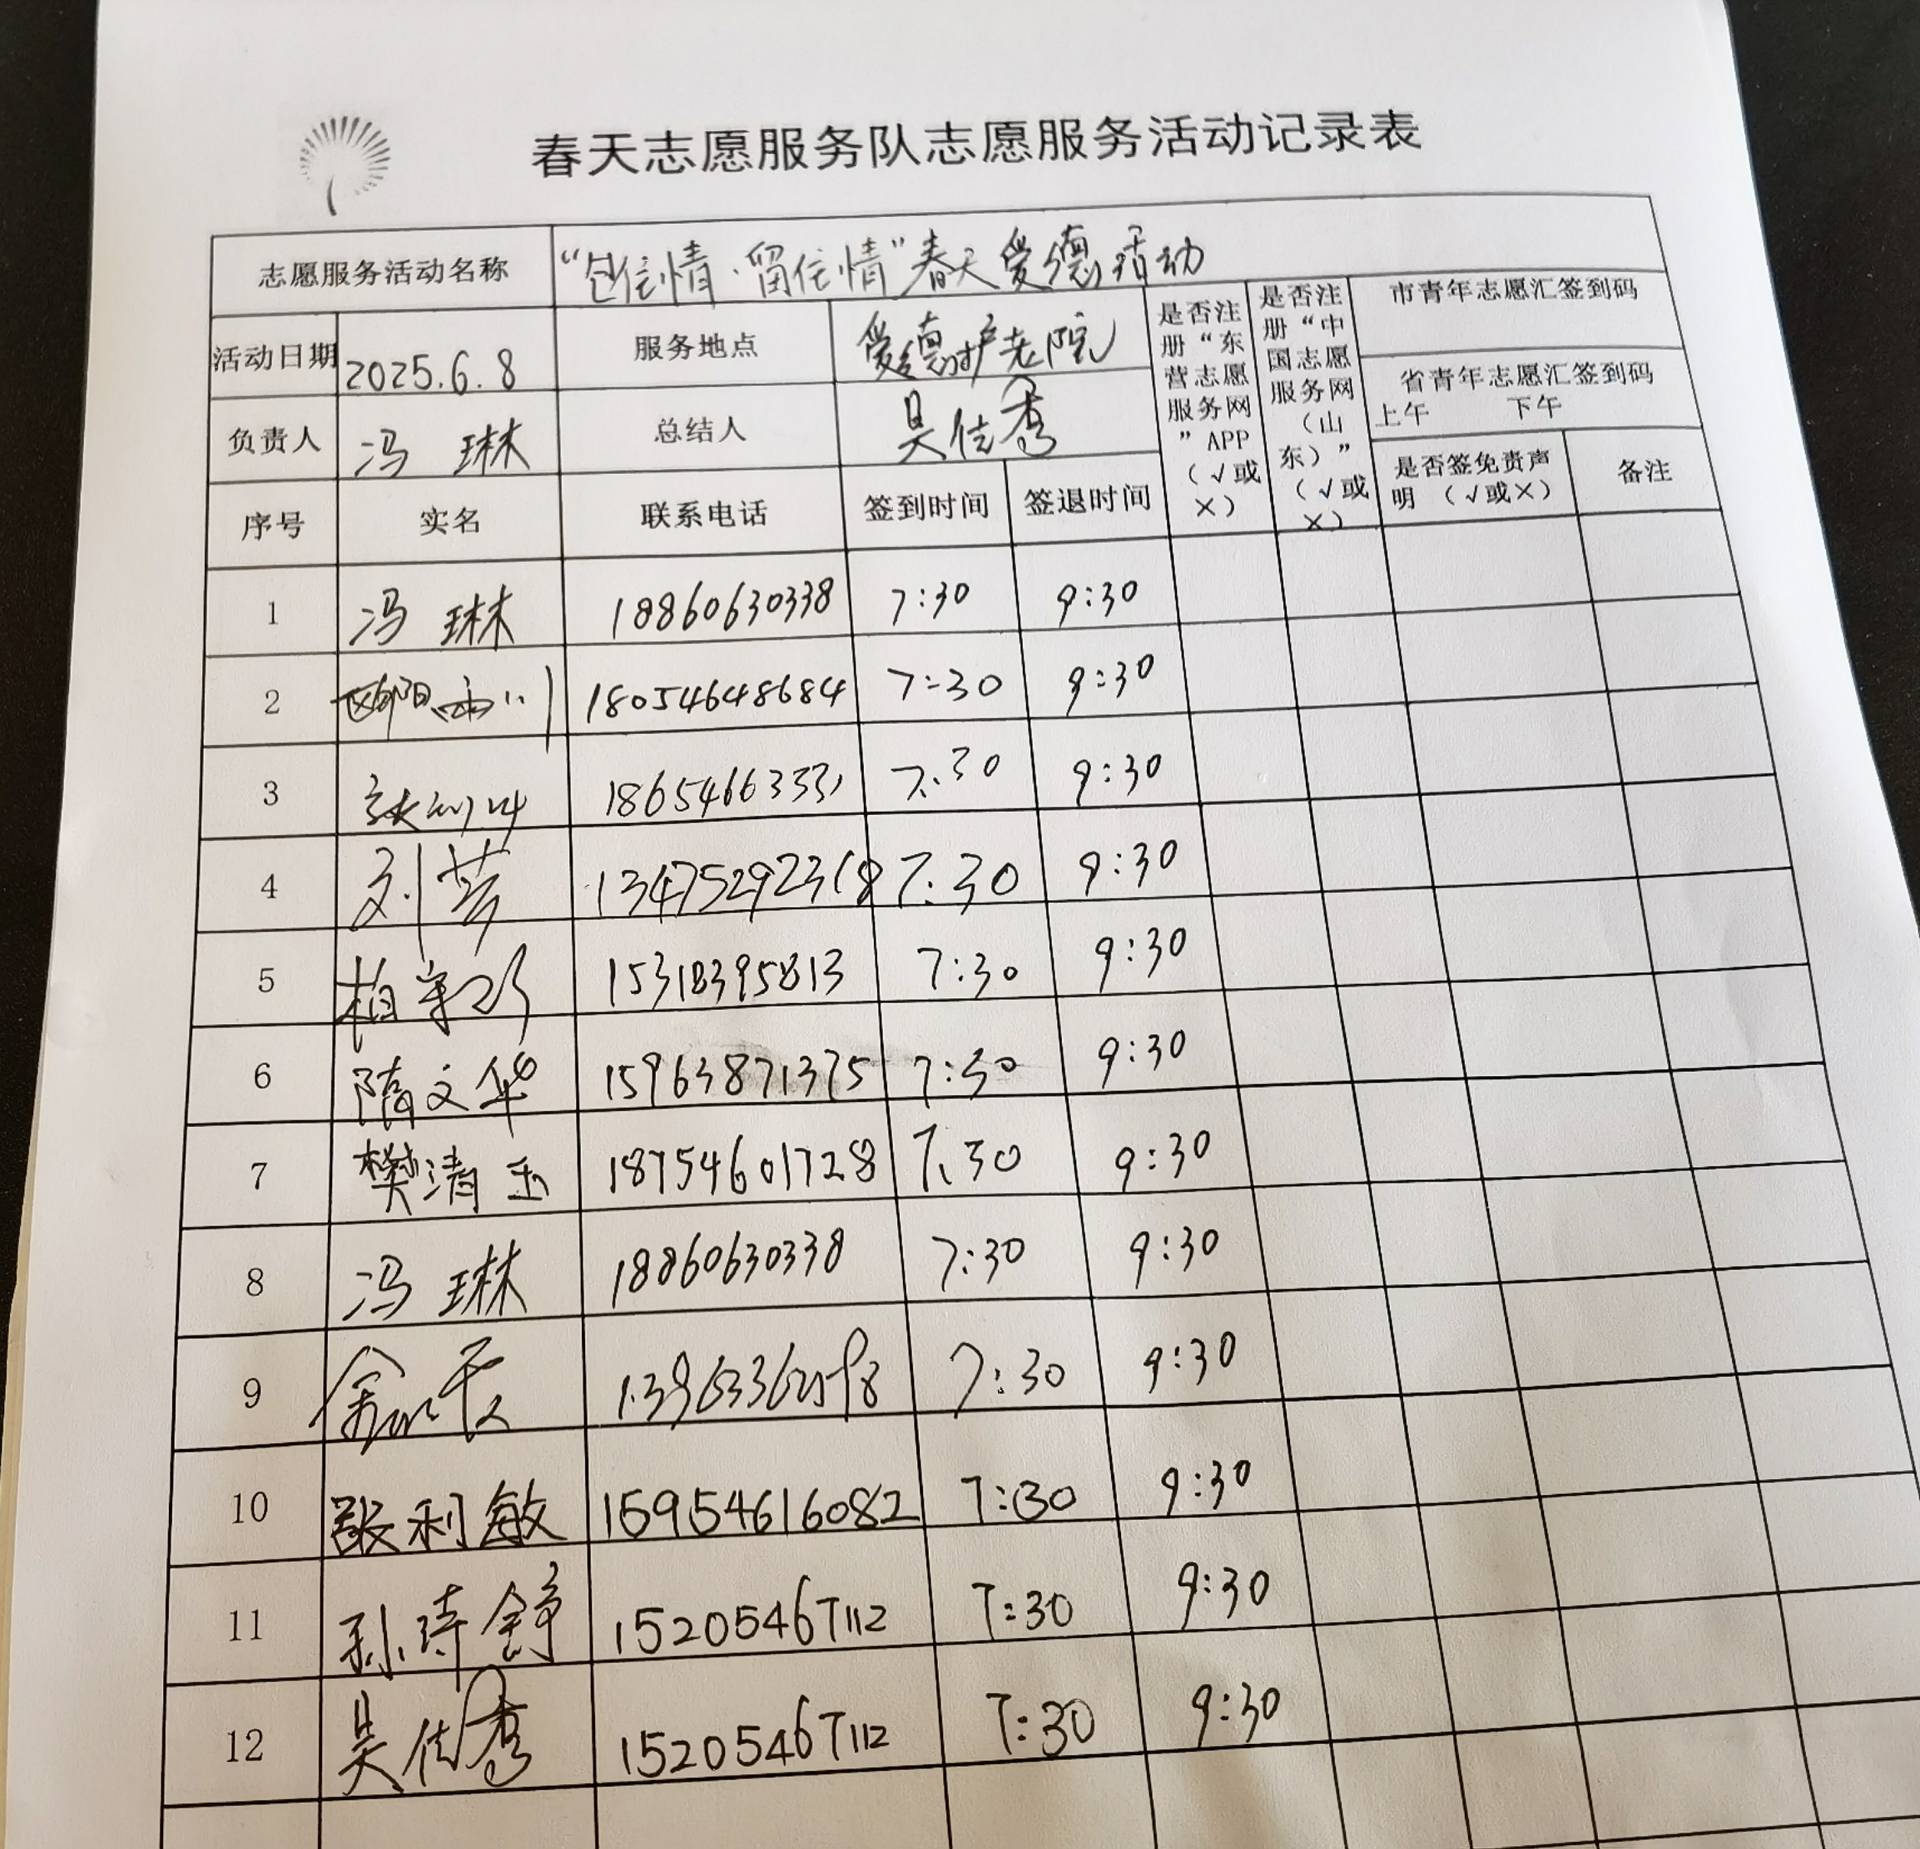 春天志愿服务队志愿服务活动记录表
志愿服务活动名称 “包住情·留住情”春天爱德活动
活动日期 2025.6.8 服务地点 爱德护老院
负责人 冯琳 总结人 吴佳秀
是否注册“东营志愿服务网”APP（√或×）
是否注册“中国志愿服务网（山东）”（√或×）
市青年志愿汇签到码
省青年志愿汇签到码
上午 下午
序号 实名 联系电话 签到时间 签退时间 是否签免责声明（√或×） 备注
1 冯琳 18860630338 7:30 9:30
2 欧阳 18054648684 7:30 9:30
3 7:30 9:30
4 刘芸 13475292318 7:30 9:30
5 15318395813 7:30 9:30
6 隋文华 15963871375 7:30 9:30
7 樊清玉 18754601728 7:30 9:30
8 冯琳 18860630338 7:30 9:30
9 7:30 9:30
10 利敏 15954616082 7:30 9:30
11 孙诗舒 15205467112 7:30 9:30
12 吴佳秀 15205467112 7:30 9:30